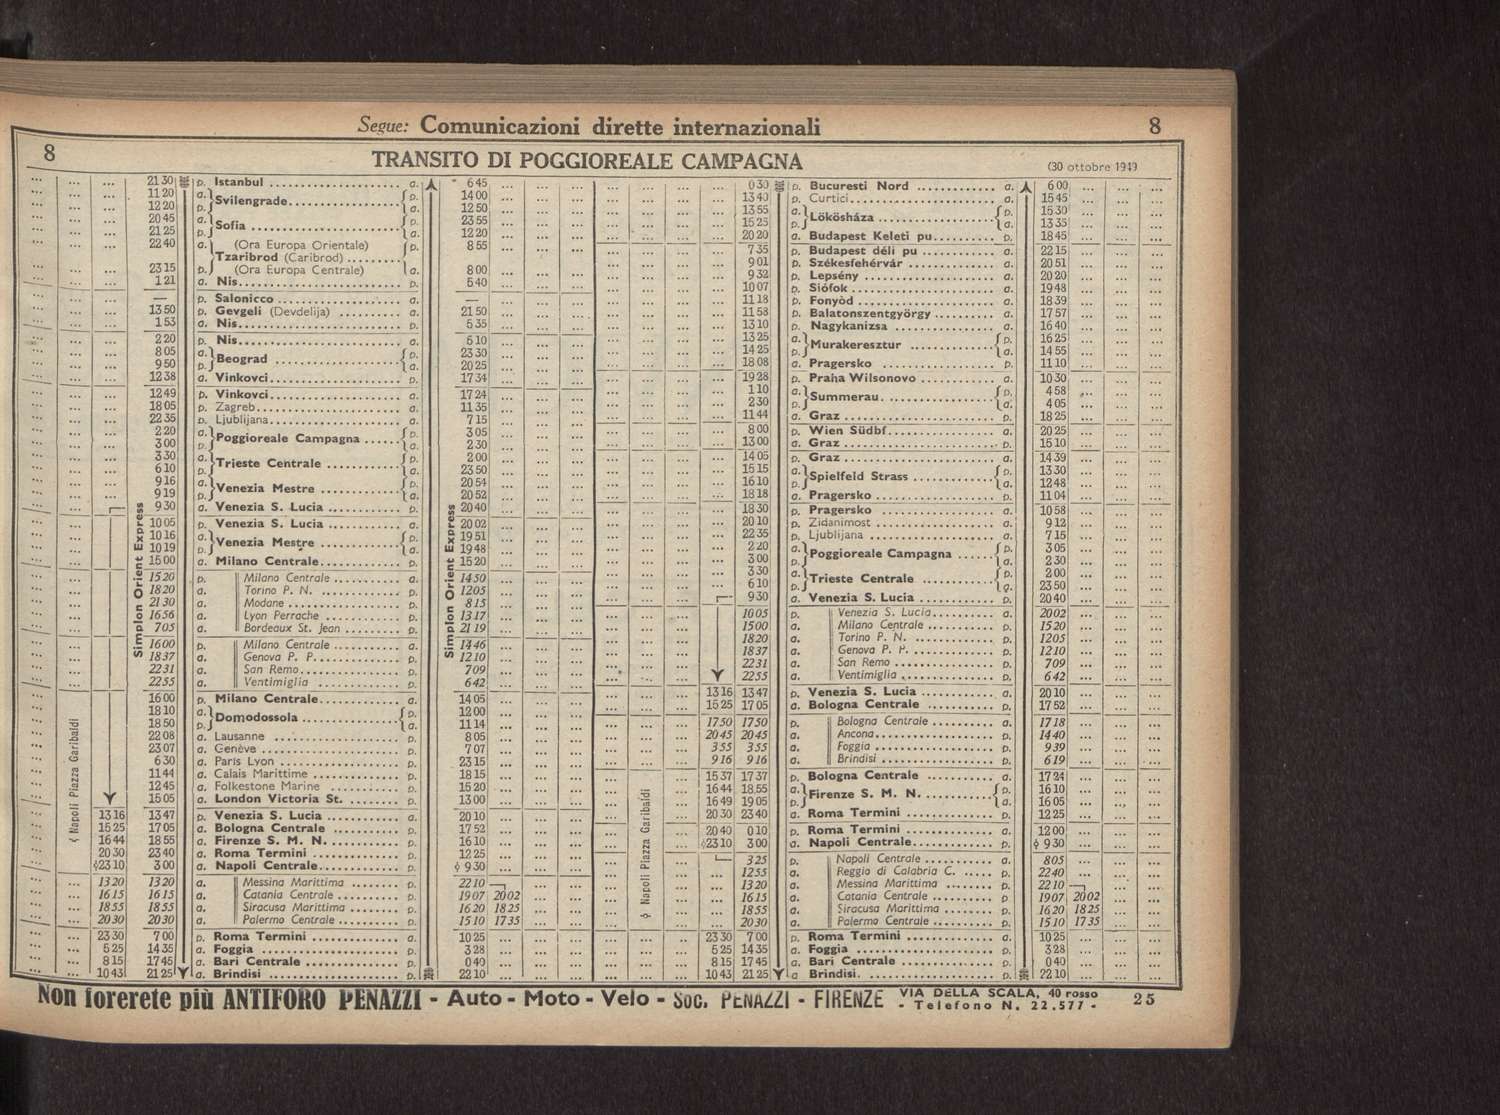 Segue: Comunicazioni dirette internazionali 8
8 TRANSITO DI POGGIOREALE CAMPAGNA (30 ottobre 1949
21 30 p. Istanbul a. 6 45
11 20 a. Svilengrade p. 14 00
12 20 p. a. 12 50
20 45 a. Sofia p. 23 55
21 25 p. a. 12 20
22 40 a. (Ora Europa Orientale) p. 8 55
Tzaribrod (Caribrod)
23 15 p. (Ora Europa Centrale) a. 8 00
1 21 a. Nis p. 5 40
— p. Salonicco a. —
13 50 p. Gevgeli (Devdelija) a. 21 50
1 53 a. Nis p. 5 35
2 20 p. Nis a. 6 10
8 05 a. Beograd p. 23 30
9 50 p. a. 20 25
12 38 a. Vinkovci p. 17 34
12 49 p. Vinkovci a. 17 24
18 05 p. Zagreb a. 11 35
22 35 p. Ljubljana a. 7 15
2 20 a. Poggioreale Campagna p. 3 05
3 00 p. a. 2 30
3 30 a. Trieste Centrale p. 2 00
6 10 p. a. 23 50
9 16 a. Venezia Mestre p. 20 54
9 19 p. a. 20 52
9 30 a. Venezia S. Lucia p. 20 40
Simplon Orient Express
10 05 p. Venezia S. Lucia a. 20 02
10 16 a. Venezia Mestre p. 19 51
10 19 p. a. 19 48
15 00 a. Milano Centrale p. 15 20
15 20 p. Milano Centrale a. 14 50
18 20 a. Torino P. N. p. 12 05
21 30 a. Modane p. 8 15
16 56 a. Lyon Perrache p. 13 17
7 05 a. Bordeaux St. Jean p. 21 19
Simplon Orient Express
16 00 p. Milano Centrale a. 14 46
18 37 a. Genova P. P. p. 12 10
22 31 a. San Remo p. 7 09
22 55 a. Ventimiglia p. 6 42
16 00 p. Milano Centrale a. 14 05
18 10 a. Domodossola p. 12 00
18 50 p. a. 11 14
22 08 a. Lausanne p. 8 05
23 07 a. Genève p. 7 07
6 30 a. Paris Lyon p. 23 15
11 44 a. Calais Marittime p. 18 15
12 45 a. Folkestone Marine p. 15 20
15 05 a. London Victoria St. p. 13 00
◊ Napoli Piazza Garibaldi
13 16 13 47 p. Venezia S. Lucia a. 20 10
15 25 17 05 a. Bologna Centrale p. 17 52
16 44 18 55 a. Firenze S. M. N. p. 16 10
20 30 23 40 a. Roma Termini p. 12 25
◊23 10 3 00 a. Napoli Centrale p. ◊ 9 30
13 20 13 20 a. Messina Marittima p. 22 10
16 15 16 15 a. Catania Centrale p. 19 07 20 02
18 55 18 55 a. Siracusa Marittima p. 16 20 18 25
20 30 20 30 a. Palermo Centrale p. 15 10 17 35
23 30 7 00 p. Roma Termini a. 10 25
5 25 14 35 a. Foggia p. 3 28
8 15 17 45 a. Bari Centrale p. 0 40
10 43 21 25 a. Brindisi p. 22 10
0 30 p. Bucuresti Nord a. 6 00
13 40 p. Curtici a. 15 45
13 55 a. Lökösháza p. 15 30
15 25 p. a. 13 35
20 20 a. Budapest Keleti pu p. 18 45
7 35 p. Budapest déli pu a. 22 15
9 01 p. Székesfehérvár a. 20 51
9 32 p. Lepsény a. 20 20
10 07 p. Siófok a. 19 48
11 18 p. Fonyòd a. 18 39
11 58 p. Balatonszentgyörgy a. 17 57
13 10 p. Nagykanizsa a. 16 40
13 25 a. Murakeresztur p. 16 25
14 25 p. a. 14 55
18 08 a. Pragersko p. 11 10
19 28 p. Praha Wilsonovo a. 10 30
1 10 a. Summerau p. 4 58
2 30 p. a. 4 05
11 44 a. Graz p. 18 25
8 00 p. Wien Südbf. a. 20 25
13 00 a. Graz p. 15 10
14 05 p. Graz a. 14 39
15 15 a. Spielfeld Strass p. 13 30
16 10 p. a. 12 48
18 18 a. Pragersko p. 11 04
18 30 p. Pragersko a. 10 58
20 10 p. Zidanimost a. 9 12
22 35 p. Ljubljana a. 7 15
2 20 a. Poggioreale Campagna p. 3 05
3 00 p. a. 2 30
3 30 a. Trieste Centrale p. 2 00
6 10 p. a. 23 50
9 30 a. Venezia S. Lucia p. 20 40
10 05 p. Venezia S. Lucia a. 20 02
15 00 a. Milano Centrale p. 15 20
18 20 a. Torino P. N. p. 12 05
18 37 a. Genova P. P. p. 12 10
22 31 a. San Remo p. 7 09
22 55 a. Ventimiglia p. 6 42
13 16 13 47 p. Venezia S. Lucia a. 20 10
15 25 17 05 a. Bologna Centrale p. 17 52
17 50 17 50 p. Bologna Centrale a. 17 18
20 45 20 45 a. Ancona p. 14 40
3 55 3 55 a. Foggia p. 9 39
9 16 9 16 a. Brindisi p. 6 19
15 37 17 37 p. Bologna Centrale a. 17 24
16 44 18 55 a. Firenze S. M. N. p. 16 10
16 49 19 05 p. a. 16 05
20 30 23 40 a. Roma Termini p. 12 25
◊ Napoli Piazza Garibaldi
20 40 0 10 p. Roma Termini a. 12 00
◊23 10 3 00 a. Napoli Centrale p. ◊ 9 30
3 25 p. Napoli Centrale a. 8 05
12 55 a. Reggio di Calabria C. p. 22 40
13 20 a. Messina Marittima p. 22 10
16 15 a. Catania Centrale p. 19 07 20 02
18 55 a. Siracusa Marittima p. 16 20 18 25
20 30 a. Palermo Centrale p. 15 10 17 35
23 30 7 00 p. Roma Termini a. 10 25
5 25 14 35 a. Foggia p. 3 28
8 15 17 45 a. Bari Centrale p. 0 40
10 43 21 25 a Brindisi. p. 22 10
Non forerete più ANTIFORO PENAZZI - Auto - Moto - Velo - Soc. PENAZZI - FIRENZE VIA DELLA SCALA, 40 rosso - Telefono N. 22.577 - 25